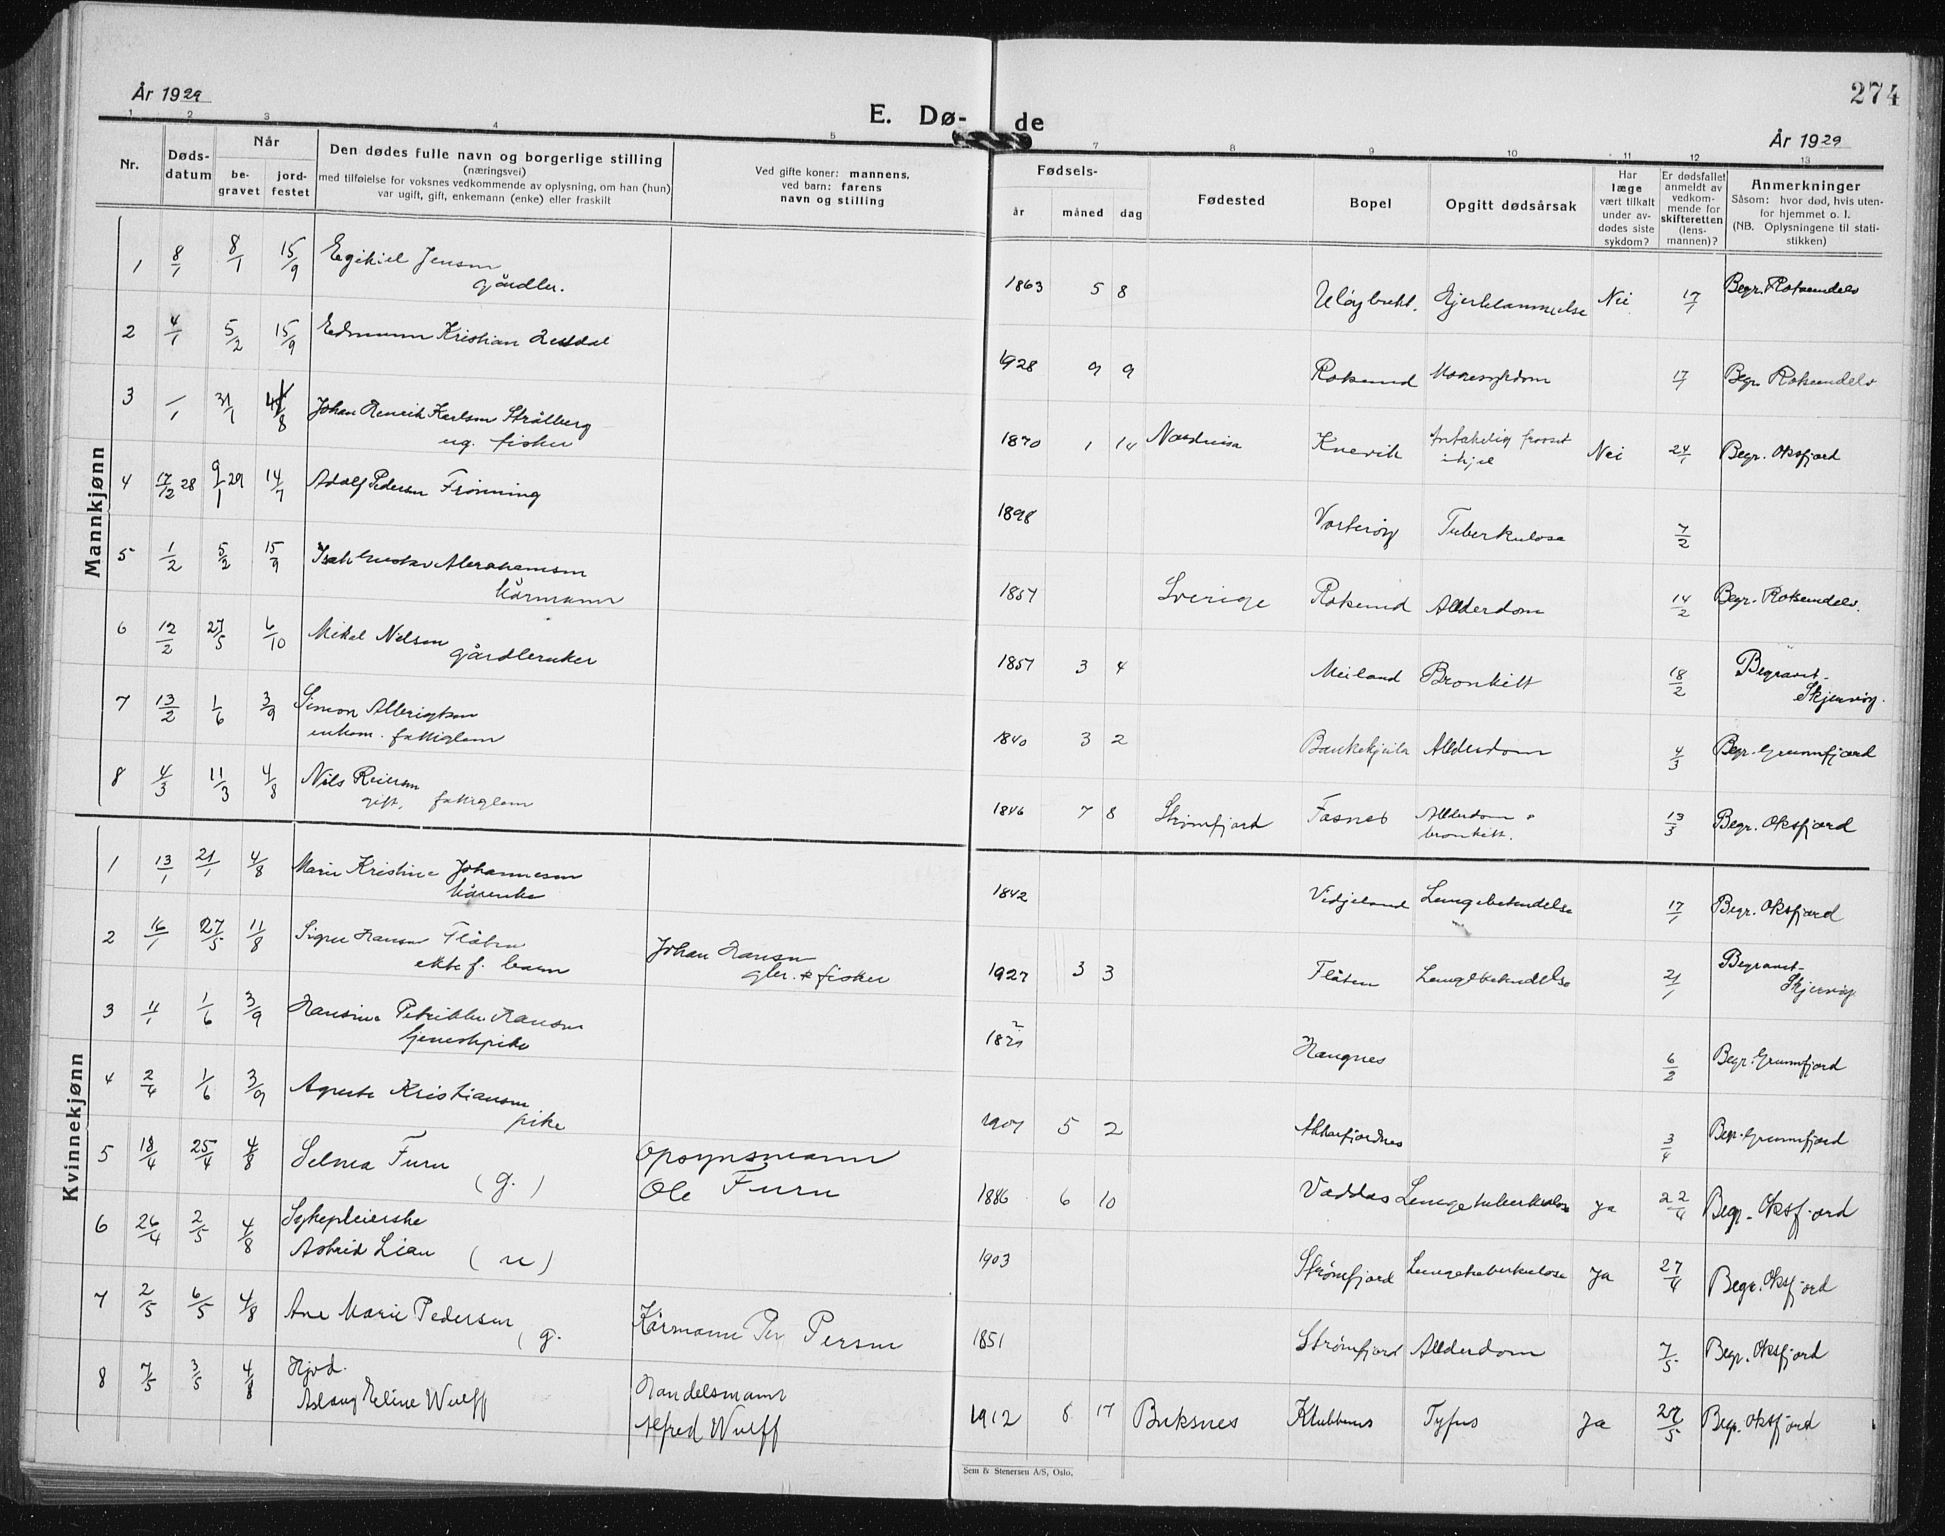 274
År 1929
E. Dø- de
År 1929
1 2 3 4 5 7 8 9 10 11 12 13
Nr.
Døds-
datum
Når
be-
gravet
jord-
festet
Den dødes fulle navn og borgerlige stilling
(næringsvei)
med tilføielse for voksnes vedkommende av oplysning, om han (hun)
var ugift, gift, enkemann (enke) eller fraskilt
Ved gifte koner: mannens,
ved barn: farens
navn og stilling
Fødsels-
år måned dag
Fødested
Bopel
Opgitt dødsårsak
Har
læge
vært tilkalt
under av-
dødes siste
sykdom?
Er dødsfallet
anmeldt av
vedkom-
mende for
skifteretten
(lens-
mannen)?
Anmerkninger
Såsom: hvor død, hvis uten-
for hjemmet o. l.
(NB. Oplysningene til stati-
stikken)
Mannkjønn
1 8/1 8/1 15/9 Jensen 1863 5 8 Nei 17/1
gårdbr.
2 4/1 5/2 15/9 Edmunn Kristian 1928 9 9 17/1
3 31/1 Johan Henrik Karlsen Strålberg 1870 1 14 Nei 24/1 Begr. Oksfjord
ug. fisker
4 17/12 28 9/1 29 14/7 Adolf Pedersen Frönning 1898 Vorterøy Tuberkulose 7/2
5 1/2 5/2 15/9 Abrahamsen 1857 Sverige Alderdom 14/2
kårmann
6 12/2 27/5 6/10 Mikal Nilsen 1857 3 4 Meiland Bronkitt 18/2 Begravet
gårdbruker Skjervøy.
7 13/2 1/6 3/9 Simon Albrigtsen 1840 3 2 Alderdom 4/3 Begr. Grunnfjord
enkem. fattiglem
8 4/3 11/3 4/8 Nils Reiersen 1846 7 8 Straumfjord Fosnes Alderdom o 13/3 Begr. Oksfjord
gift, fattiglem bronkitt.
Kvinnekjønn
1 13/1 21/1 4/8 Marie Kristine Johannesen 1842 Vidjeland Lungebetendelse 17/1 Begr. Oksfjord
kårenke
2 16/1 27/5 11/8 Signe Hansen Flåten Johan Hansen 1927 3 3 Flåten Lungebetendelse 21/1 Begravet
ekte f. barn gbr. & fisker Skjervøy
3 1/6 3/9 Hansine Petrikke Hansen Haugnes 6/2 Begr. Grunnfjord
tjenestepike
4 2/4 1/6 3/9 Agnete Kristiansen 1907 5 2 Akkarfjordnes 3/4 Begr. Grunnfjord
pike
5 18/4 25/4 4/8 Selma Furu (g.) Opsynsmann 1886 6 10 Vaddas Lungetuberkulose Ja 22/4 Begr. Oksfjord
Ole Furu
6 26/4 2/5 4/8 Sykepleierske 1903 Strømfjord Lungetuberkulose Ja 27/4 Begr. Oksfjord
Astrid Lian (u)
7 2/5 6/5 4/8 Ane Marie Pedersen (g. Kårmann Per Persen 1851 Strømfjord Alderdom 7/5 Begr. Oksfjord
8 7/5 3/5 4/8 Hjvd. Handelsmann 1912 8 17 Buksnes Klubbenes Tyfus Ja 27/5 Begr. Oksfjord
Aslaug Eline Wulff Alfred Wulff
Sem & Stenersen A/S, Oslo.